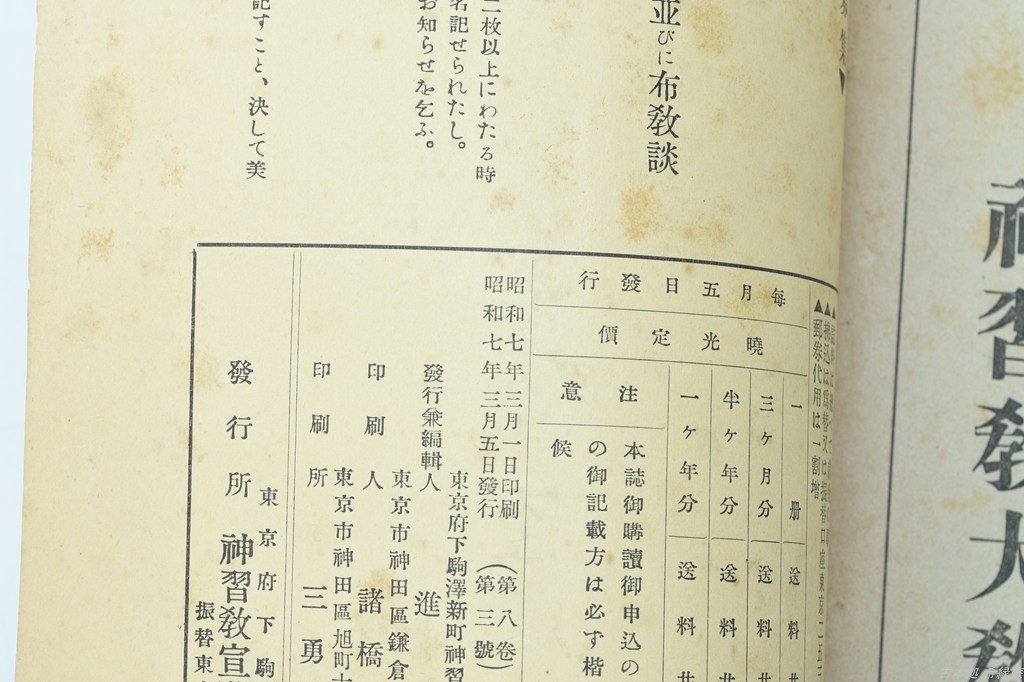 神習敎大
並びに布敎談
二枚以上にわたる時
名記せられたし。
お知らせを乞ふ。
記すこと、決して美
郵券代用は一割增
每月五日發行
曉光定價
一册送料
三ヶ月分送料廿
半ヶ年分送料
一ヶ年分送料廿
注意
本誌御購讀御申込の
の御記載方は必ず楷
候
昭和七年三月一日印刷
昭和七年三月五日發行
(第八卷)
(第三號)
東京府下駒澤新町神習
發行兼編輯人 進
東京市神田區鎌倉
印刷人 諸橋
東京市神田區旭町十
印刷所 三勇
東京府下駒
發行所 神習敎宣
振替東